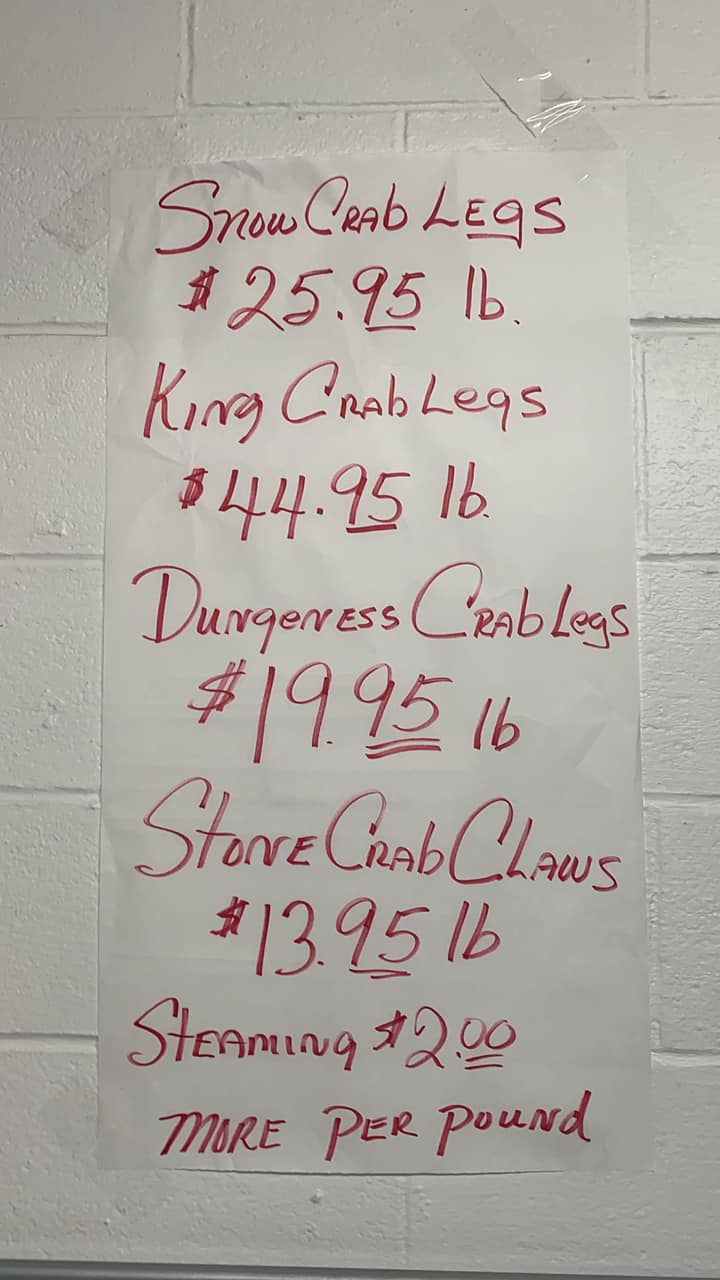 Snow Crab Legs
$25.95 lb.
King Crab Legs
$44.95 lb.
Dungeness Crab Legs
$19.95 lb
Stone Crab Claws
$13.95 lb
Steaming $2.00
more per pound